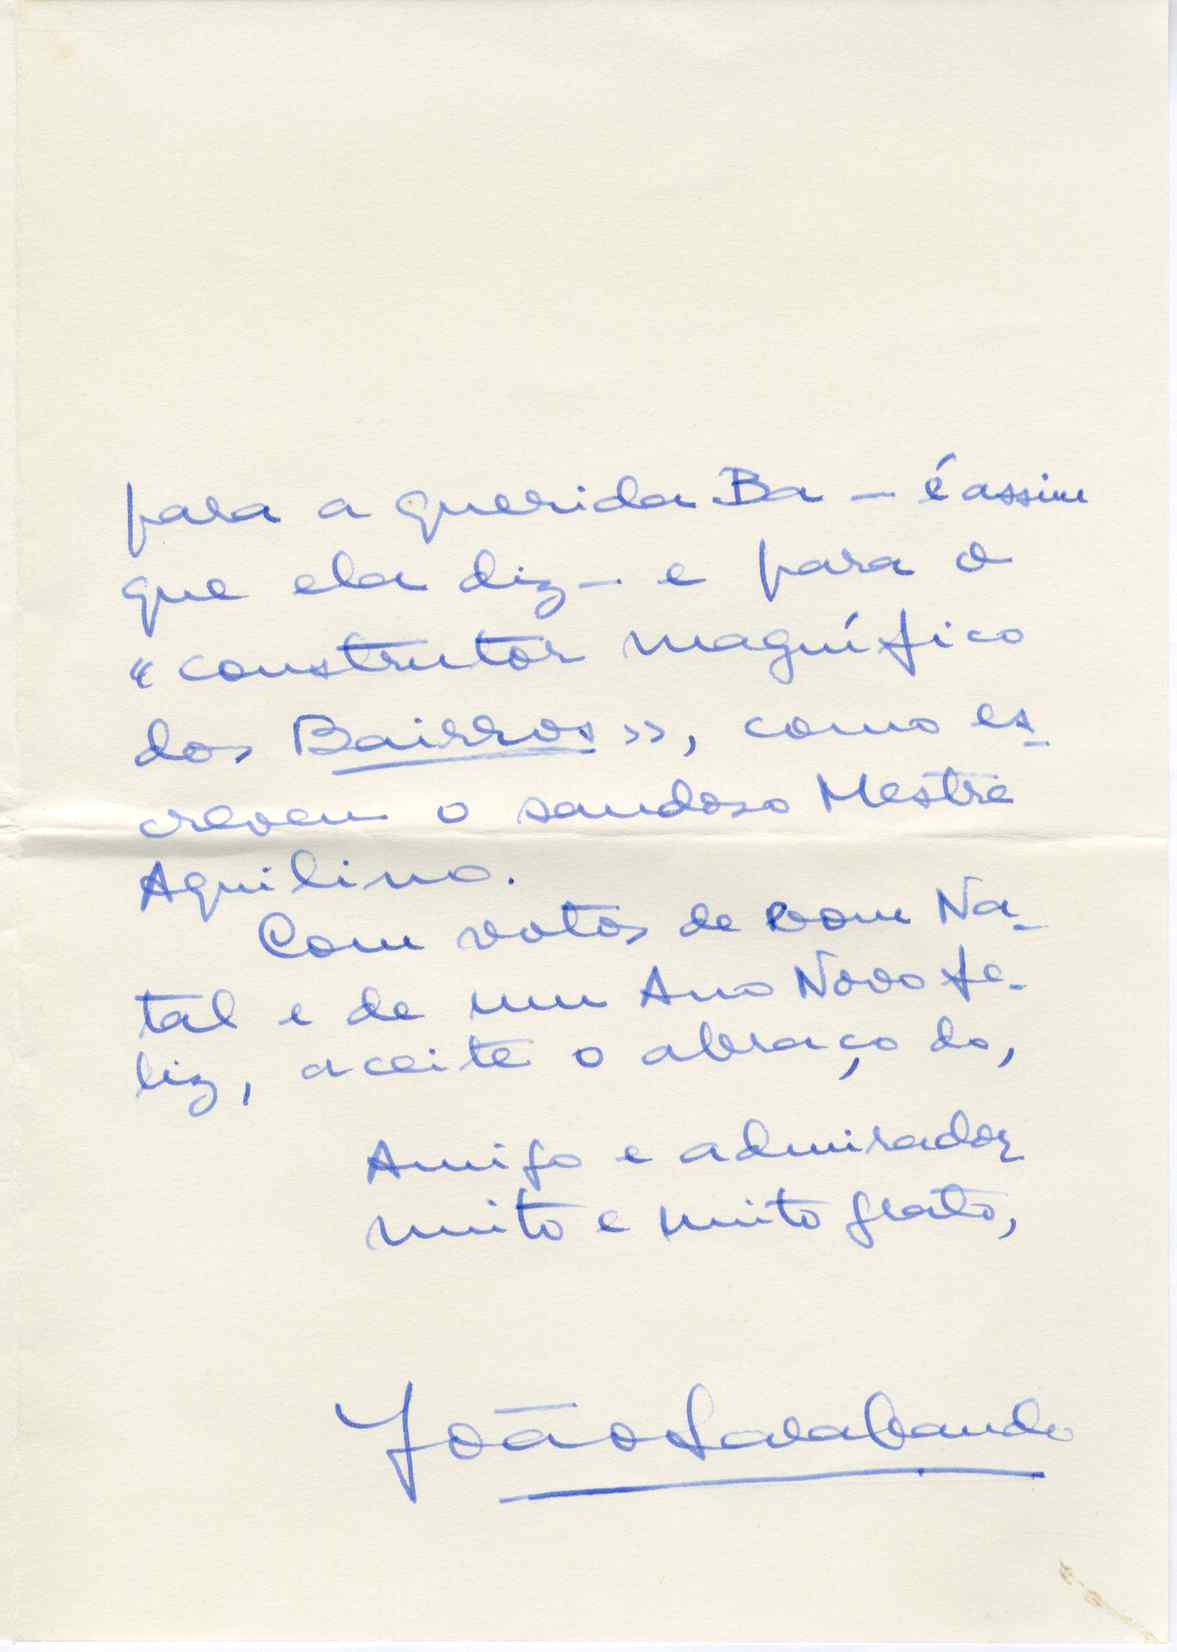 para a querida Ba — é assim
que ela diz — e para o
"construtor magnífico
dos Bairros», como es-
creveu o saudoso Mestre
Aquilino.
Com votos de bom Na-
tal e de um Ano Novo fe-
liz, aceite o abraço do,
Amigo e admirador
muito e muito grato,
João Sarabando